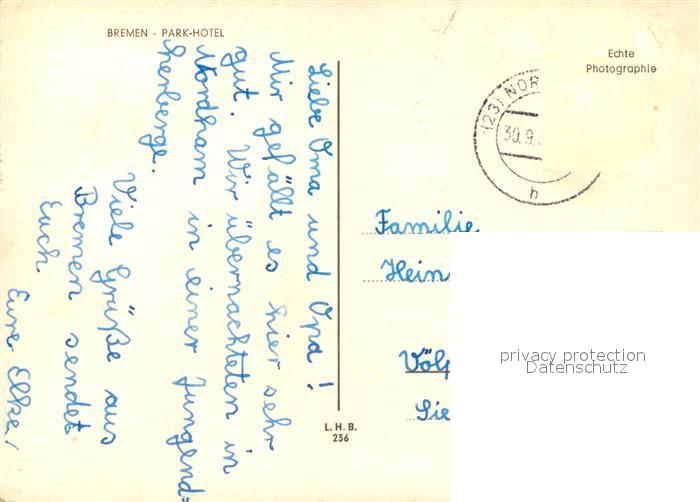 BREMEN · PARK-HOTEL
Liebe Oma und Opa!
Mir gefällt es hier sehr
gut. Wir übernachteten in
Nordham in einer Jungend=
herberge.
Viele Grüße aus
Bremen sendet
Euch
Eure Elke,
L. H. B.
236
Echte
Photographie
(23) NOR
30.9.
h
Familie
Hein
Völp
Sie
privacy protection
Datenschutz